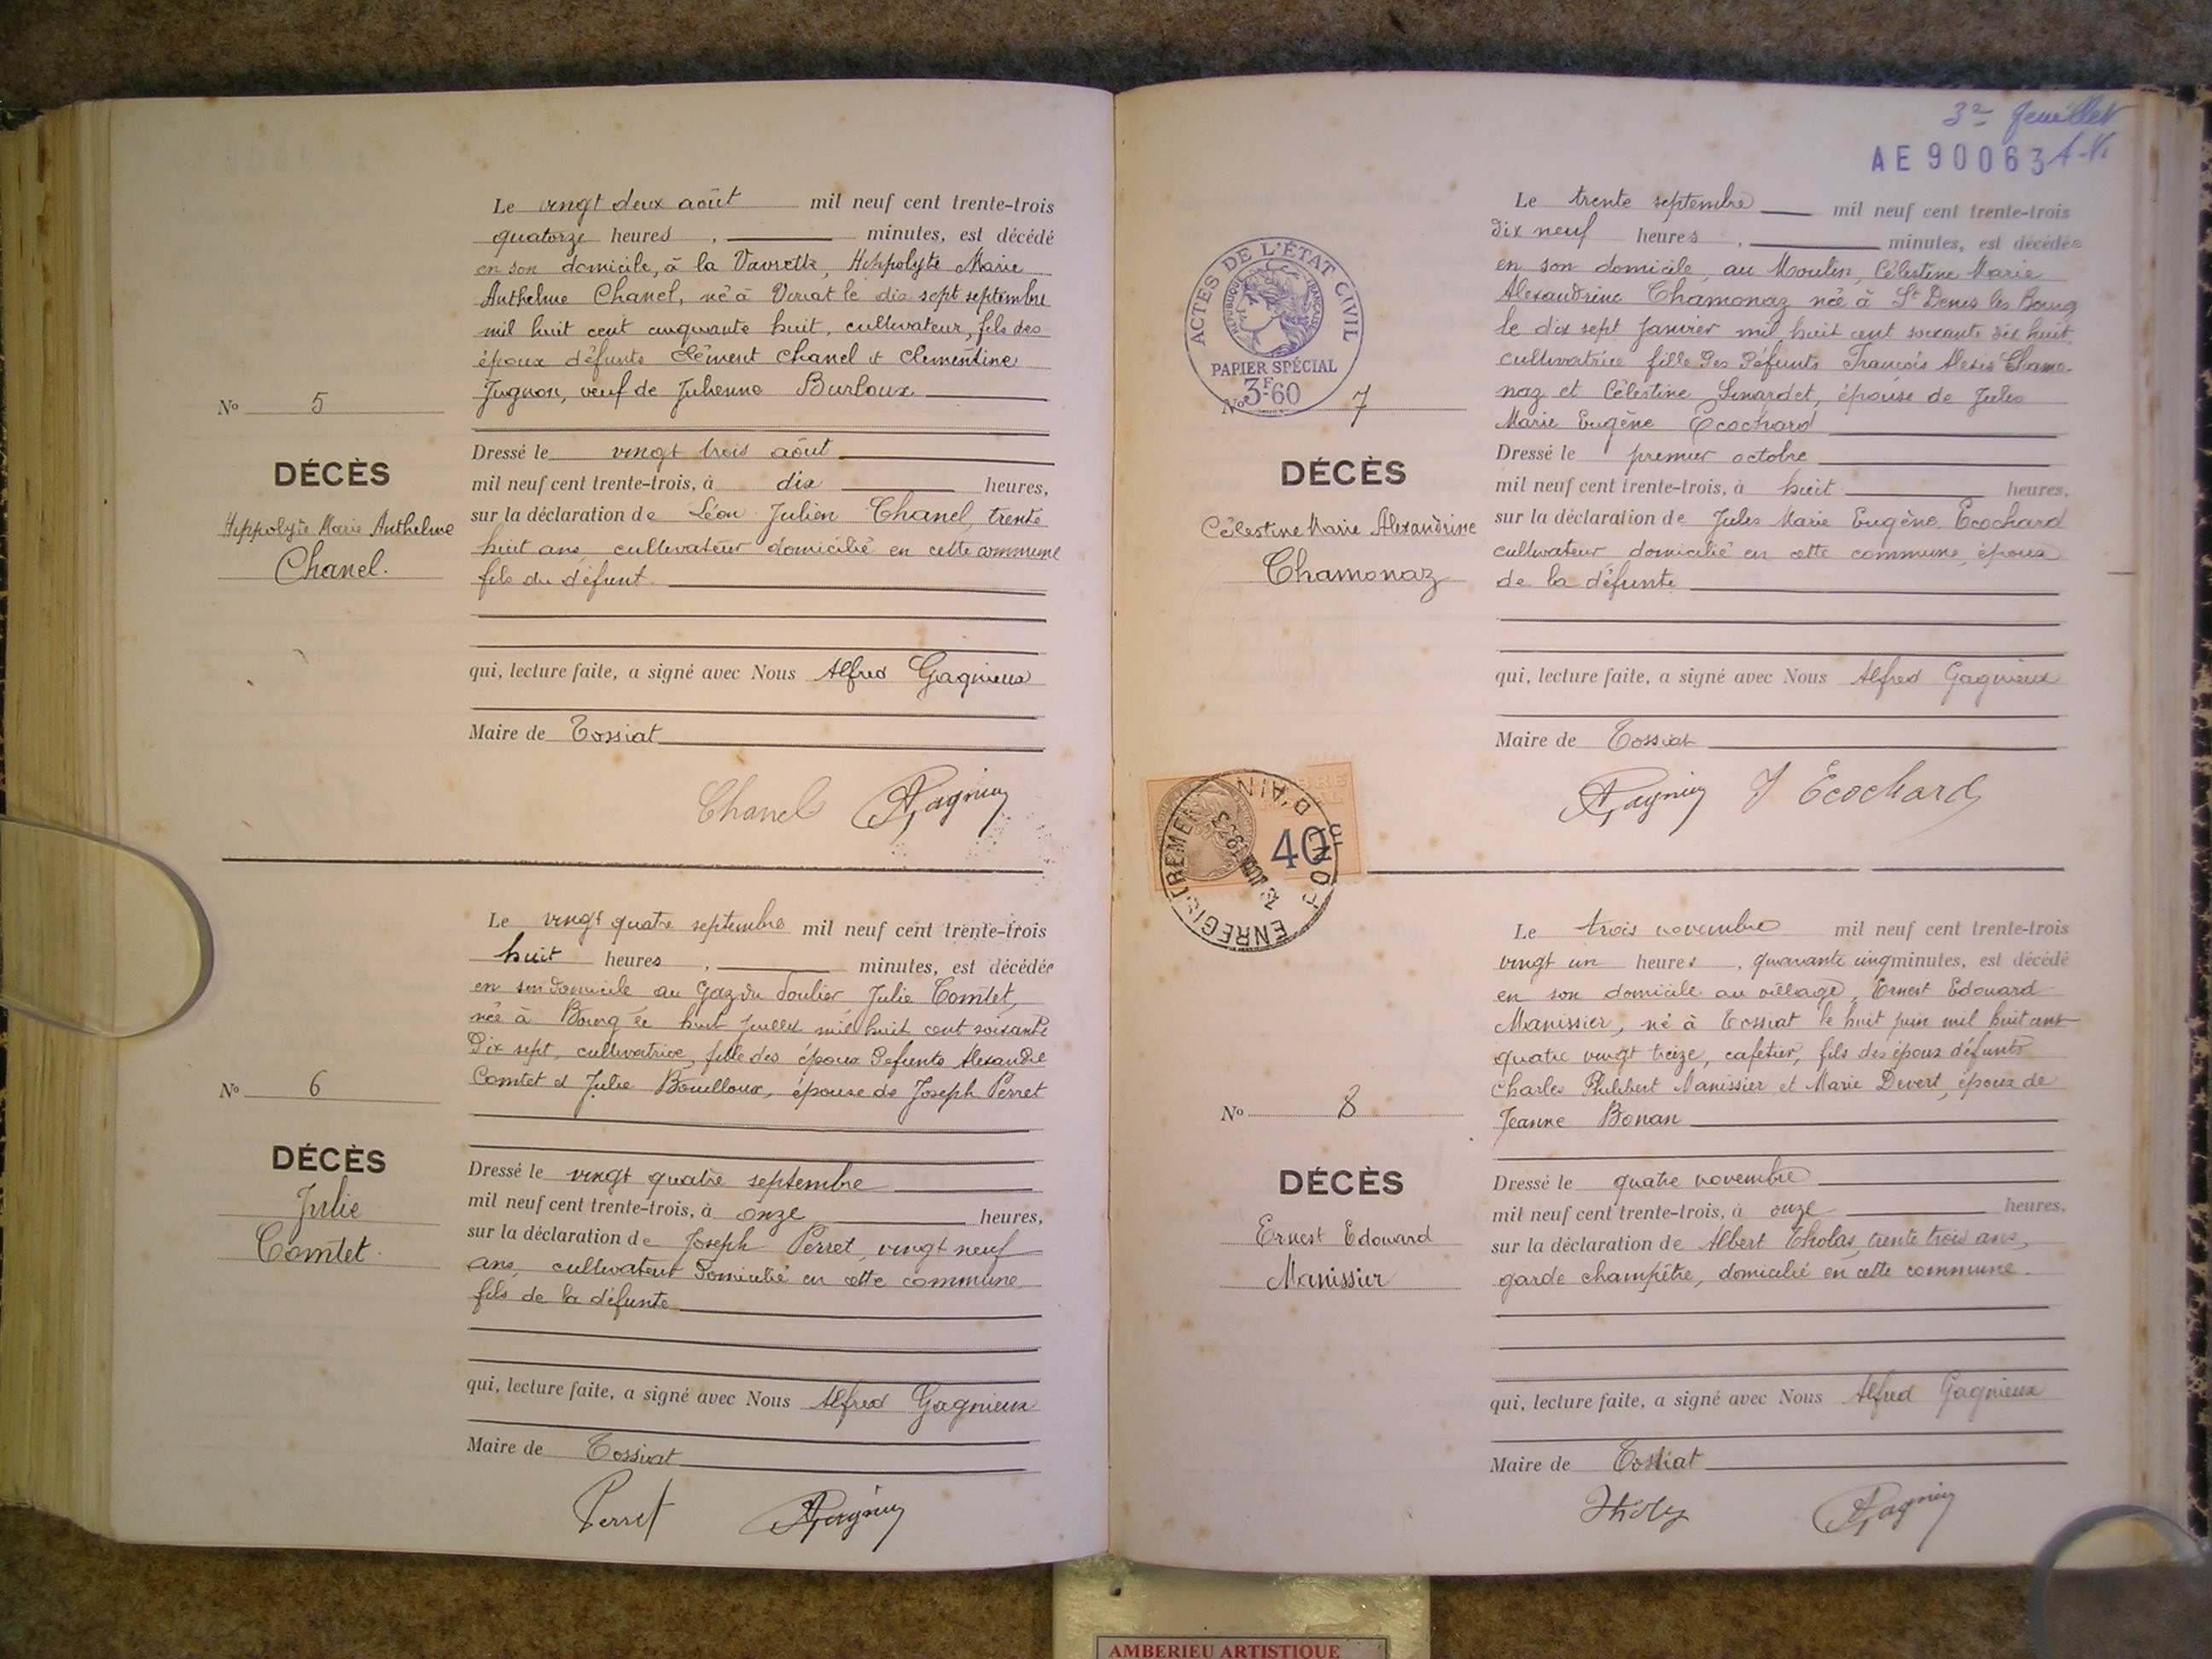 Le vingt deux août mil neuf cent trente-trois
quatorze heures, minutes, est décédé
en son domicile, à la Vavrette, Hippolyte Marie
Anthelme Chanel, né à Viriat le dix sept septembre
mil huit cent cinquante huit, cultivateur, fils des
époux défunts Clément Chanel et Clémentine
Jugnon, veuf de Julienne Burloux
No 5
DÉCÈS
Hippolyte Marie Anthelme
Chanel.
Dressé le vingt trois août
mil neuf cent trente-trois, à dix heures,
sur la déclaration de Léon Julien Chanel, trente
huit ans, cultivateur domicilié en cette commune
fils du défunt
qui, lecture faite, a signé avec Nous Alfred Gagnieux
Maire de Tossiat
Chanel AGagnieux
Le vingt quatre septembre mil neuf cent trente-trois
huit heures, minutes, est décédée
en son domicile au Julie Comtet,
née à Bourg le huit juillet mil huit cent soixante
dix sept, cultivatrice, fille des époux défunts Alexandre
Comtet et Julie Bouilloux, épouse de Joseph Perret
No 6
DÉCÈS
Julie
Comtet.
Dressé le vingt quatre septembre
mil neuf cent trente-trois, à onze heures,
sur la déclaration de Joseph Perret, vingt neuf
ans, cultivateur domicilié en cette commune
fils de la défunte
qui, lecture faite, a signé avec Nous Alfred Gagnieux
Maire de Tossiat
Perret AGagnieux
3e feuillet
AE 90063
ACTES DE L'ÉTAT CIVIL
RÉPUBLIQUE FRANÇAISE
PAPIER SPÉCIAL
3F60
Le trente septembre mil neuf cent trente-trois
dix neuf heures, minutes, est décédée
en son domicile, au Moulin, Célestine Marie
Alexandrine Chamonaz née à St Denis les Bourg
le dix sept janvier mil huit cent soixante dix huit,
cultivatrice fille des défunts François Alexis Chamo-
naz et Célestine Sinardet, épouse de Jules
Marie Eugène Ecochard
No 7
DÉCÈS
Célestine Marie Alexandrine
Chamonaz
Dressé le premier octobre
mil neuf cent trente-trois, à huit heures,
sur la déclaration de Jules Marie Eugène Ecochard
cultivateur domicilié en cette commune, époux
de la défunte
qui, lecture faite, a signé avec Nous Alfred Gagnieux
Maire de Tossiat
AGagnieux J Ecochard
40c
ENREGISTREMENT
D'AIN
Le trois novembre mil neuf cent trente-trois
vingt un heures, quarante cinq minutes, est décédé
en son domicile au village, Ernest Edouard
Manissier, né à Tossiat le huit juin mil huit cent
quatre vingt treize, cafetier, fils des époux défunts
Charles Philibert Manissier et Marie Devert, époux de
Jeanne Bonan
No 8
DÉCÈS
Ernest Edouard
Manissier
Dressé le quatre novembre
mil neuf cent trente-trois, à onze heures,
sur la déclaration de Albert Tholas, trente trois ans,
garde champêtre, domicilié en cette commune.
qui, lecture faite, a signé avec Nous Alfred Gagnieux
Maire de Tossiat
AGagnieux
AMBERIEU ARTISTIQUE